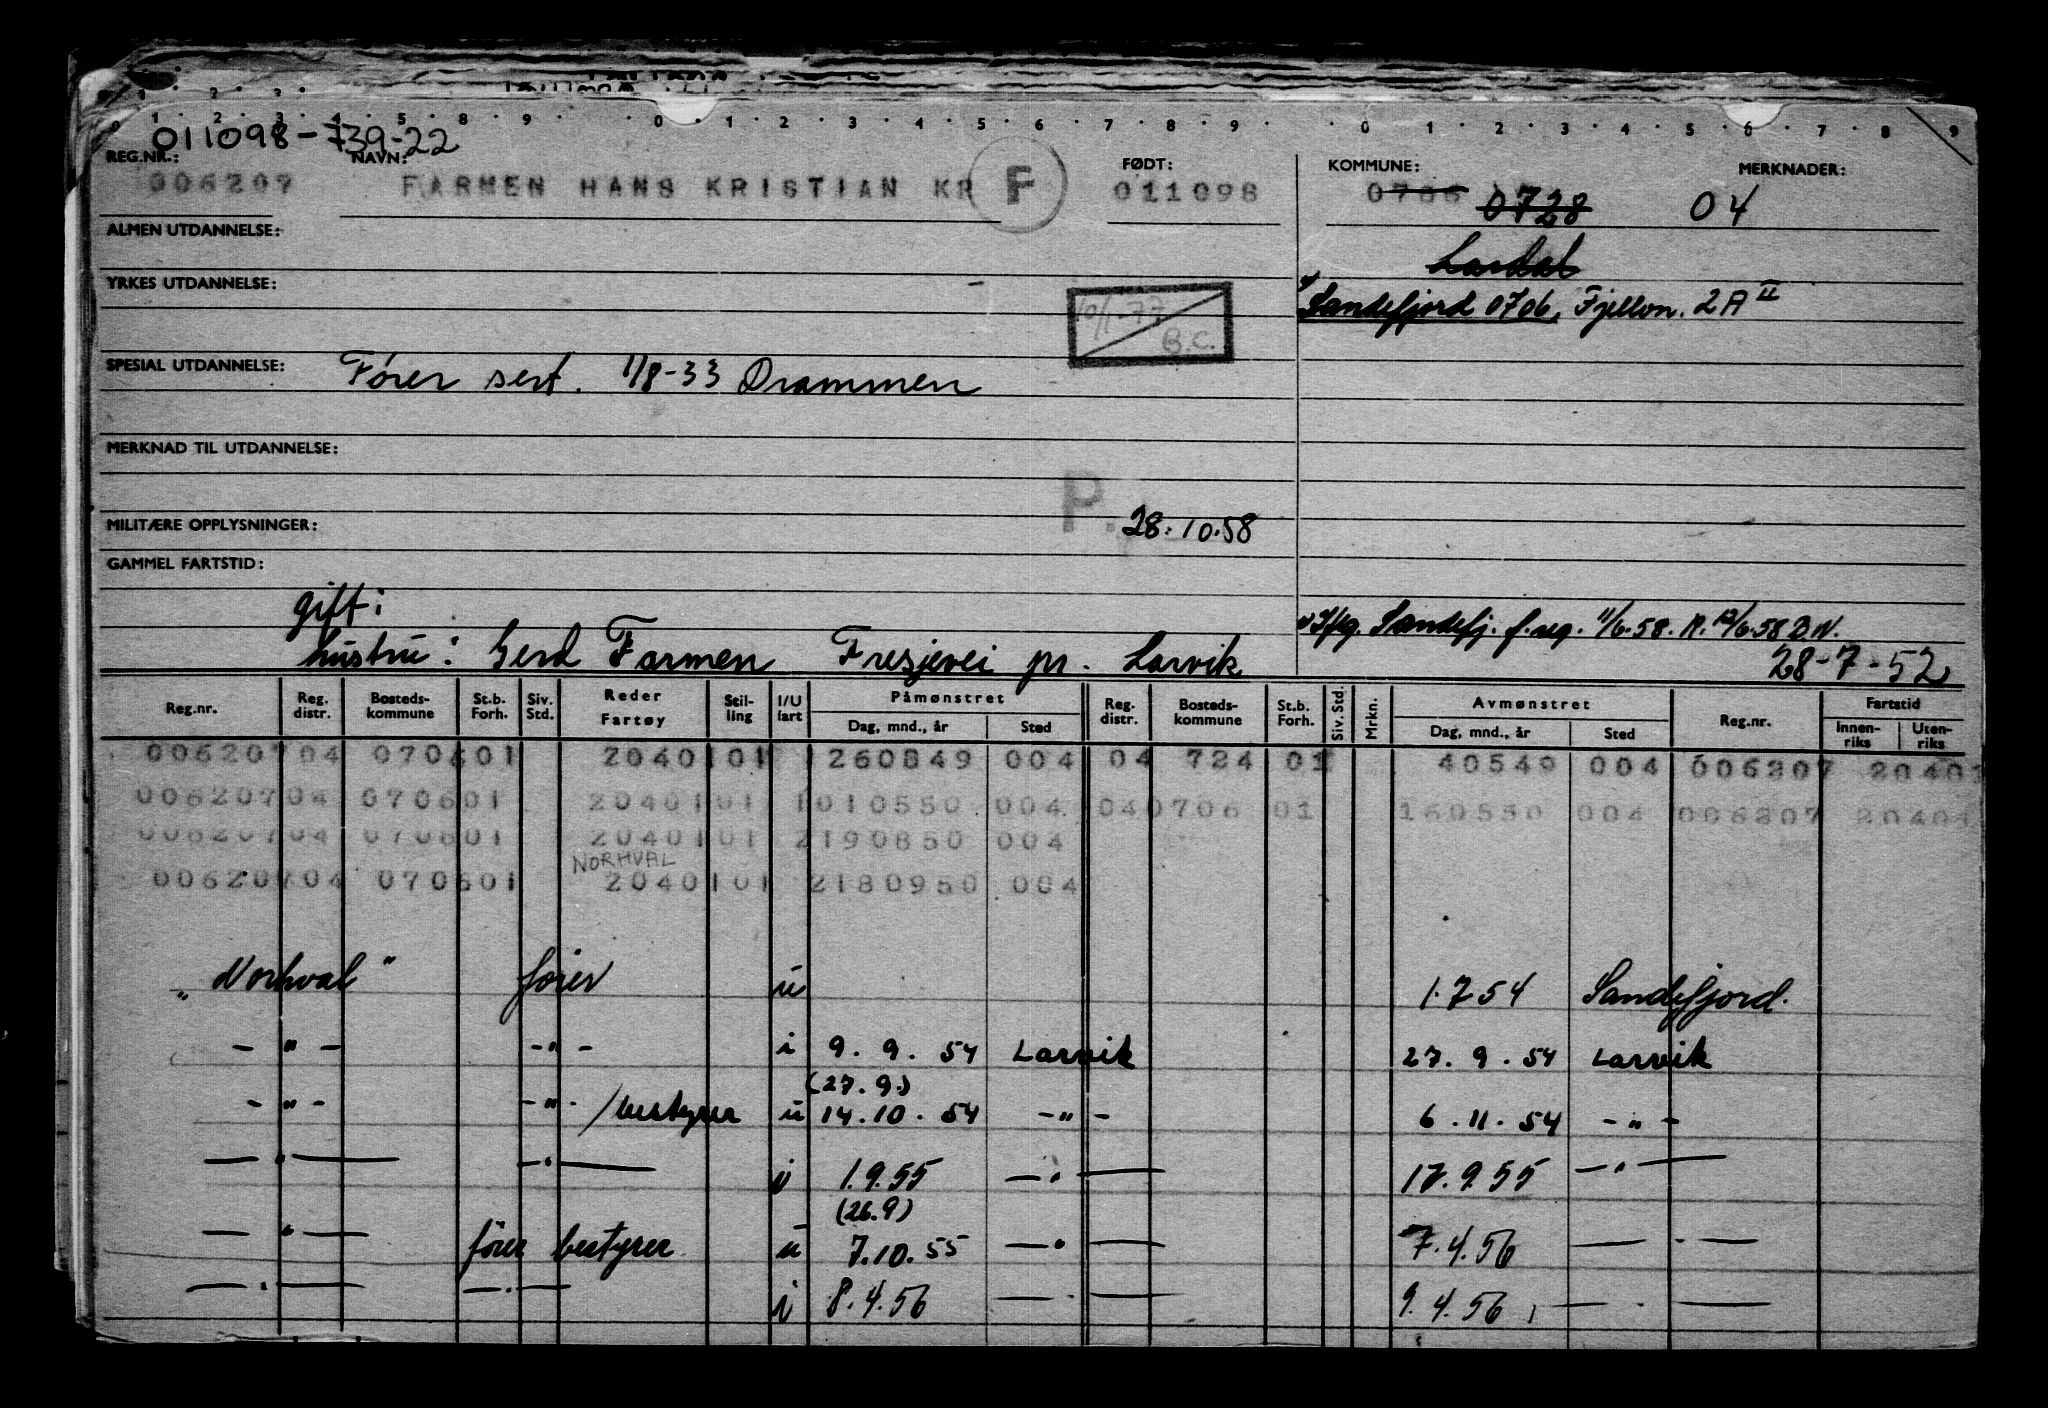 011098-739-22
REG.NR.: NAVN: FØDT: KOMMUNE: MERKNADER:
006207 FARMEN HANS KRISTIAN KR F 011098 0706 0728 04
ALMEN UTDANNELSE:
Lardal
YRKES UTDANNELSE:
Sandefjord 0706, Fjellvn. 2A II
10/1-77
B.C.
SPESIAL UTDANNELSE: Fører sert. 1/8-33 Drammen
MERKNAD TIL UTDANNELSE:
P.
MILITÆRE OPPLYSNINGER: 28.10.58
GAMMEL FARTSTID:
gift:
Sandefj. f. reg. 11/6.58. A. 12/6.58 B.N.
hustru: Gerd Farmen Fresjevei pr. Larvik 28-7-52
Reg.nr. Reg. distr. Bosteds-kommune St.b. Forh. Siv. Std. Reder Fartøy Stil-ling I/U fart Påmønstret Dag, mnd., år Sted Reg. distr. Bosteds-kommune St.b. Forh. Siv. Std. Mrkn. Avmønstret Dag, mnd., år Sted Reg.nr. Fartstid Innen-riks Uten-riks
006207 04 0706 01 20401 01 260849 004 04 724 01 40549 004 006207 20401
006207 04 0706 01 20401 01 1010550 004 04 0706 01 160550 004 006207 20401
006207 04 0706 01 20401 01 2190850 004
NORHVAL
006207 04 0706 01 20401 01 2180950 004
„Norhval" fører u 1.7 54 Sandefjord.
- " - - " - i 9. 9. 54 Larvik 27. 9. 54 Larvik
(27.9.)
- " - - " - /bestyrer u 14.10.54 - " - 6.11.54 - " -
- " - - " - i 1.9.55 - " - 17.9.55 - " -
(26.9)
- " - fører bestyrer u 7.10.55 - " - 7.4.56 - " -
- " - - " - i 8.4.56 - " - 9.4.56 - " -